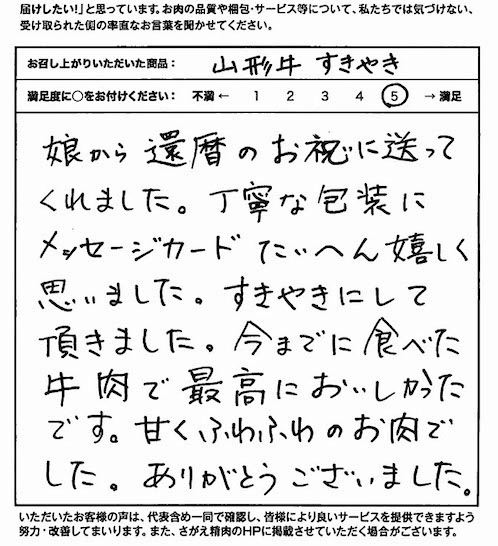 届けしたい！」と思っています。お肉の品質や梱包・サービス等について、私たちでは気づけない、
受け取られた側の率直なお言葉を聞かせてください。
お召し上がりいただいた商品： 山形牛 すきやき
満足度に○をお付けください： 不満 ← 1 2 3 4 5 → 満足
娘から還暦のお祝に送って
くれました。丁寧な包装に
メッセージカードたいへん嬉しく
思いました。すきやきにして
頂きました。今までに食べた
牛肉で最高においしかった
です。甘くふわふわのお肉で
した。ありがとうございました。
いただいたお客様の声は、代表含め一同で確認し、皆様により良いサービスを提供できますよう
努力・改善してまいります。また、さがえ精肉のHPに掲載させていただく場合がございます。